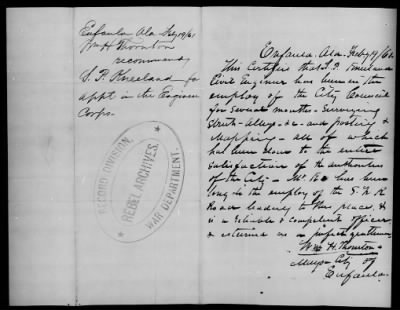 Eufaula Ala Feby 19/62
Wm H. Thornton
recommends
S. P. Kneeland for
appt in the Engineer
Corps.
RECORD DIVISION.
REBEL ARCHIVES.
WAR DEPARTMENT.
Eufaula. Ala. Feby 19/62
This Certifies that S. P. Kneeland
Civil Engineer has been in the
employ of the City Council
for several months - Surveying
Streets - Alleys - &c - and
Mapping - all of which
has been done to the entire
satisfaction of the authorities
of the City - Mr. K has been
long in the employ of the R
Road leading to this place, &
is a reliable & competent officer
& esteemed as a perfect gentleman
Wm H. Thornton
Mayor City of
Eufaula